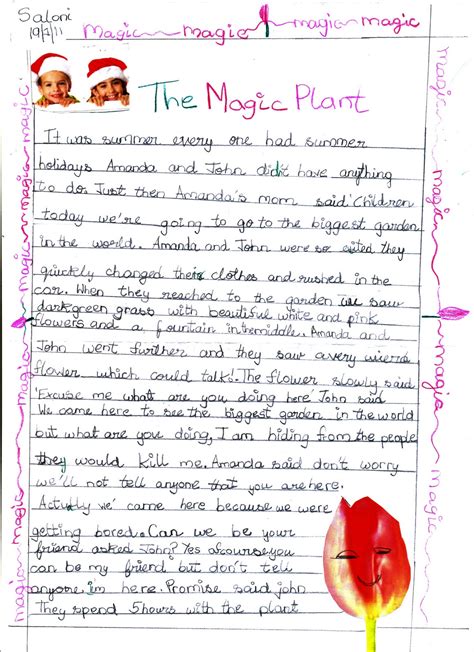 Saloni
19/7/11
magic magic magic magic
The Magic Plant
It was summer every one had summer
holidays Amanda and John didn't have anything
to do. Just then Amanda's mom said 'Children
today we're going to go to the biggest garden
in the world. Amanda and John were so exited they
quickly changed their clothes and rushed in the
car. When they reached to the garden we saw
dark green grass with beautiful white and pink
flowers and a fountain in the middle. Amanda and
John went further and they saw a very wierd
flower which could talk!. The flower slowly said
'Excuse me what are you doing here' John said
We came here to see the biggest garden in the world
but what are you doing, I am hiding from the people
they would kill me. Amanda said don't worry
we'll not tell anyone that you are here.
Actually we' came here because we were
getting bored. Can we be your
friend asked John? Yes afcourse you
can be my friend but don't tell
anyone im here. Promise said john
They spend 5 hours with the plant
magic magic magic magic magic magic
magic magic magic magic magic